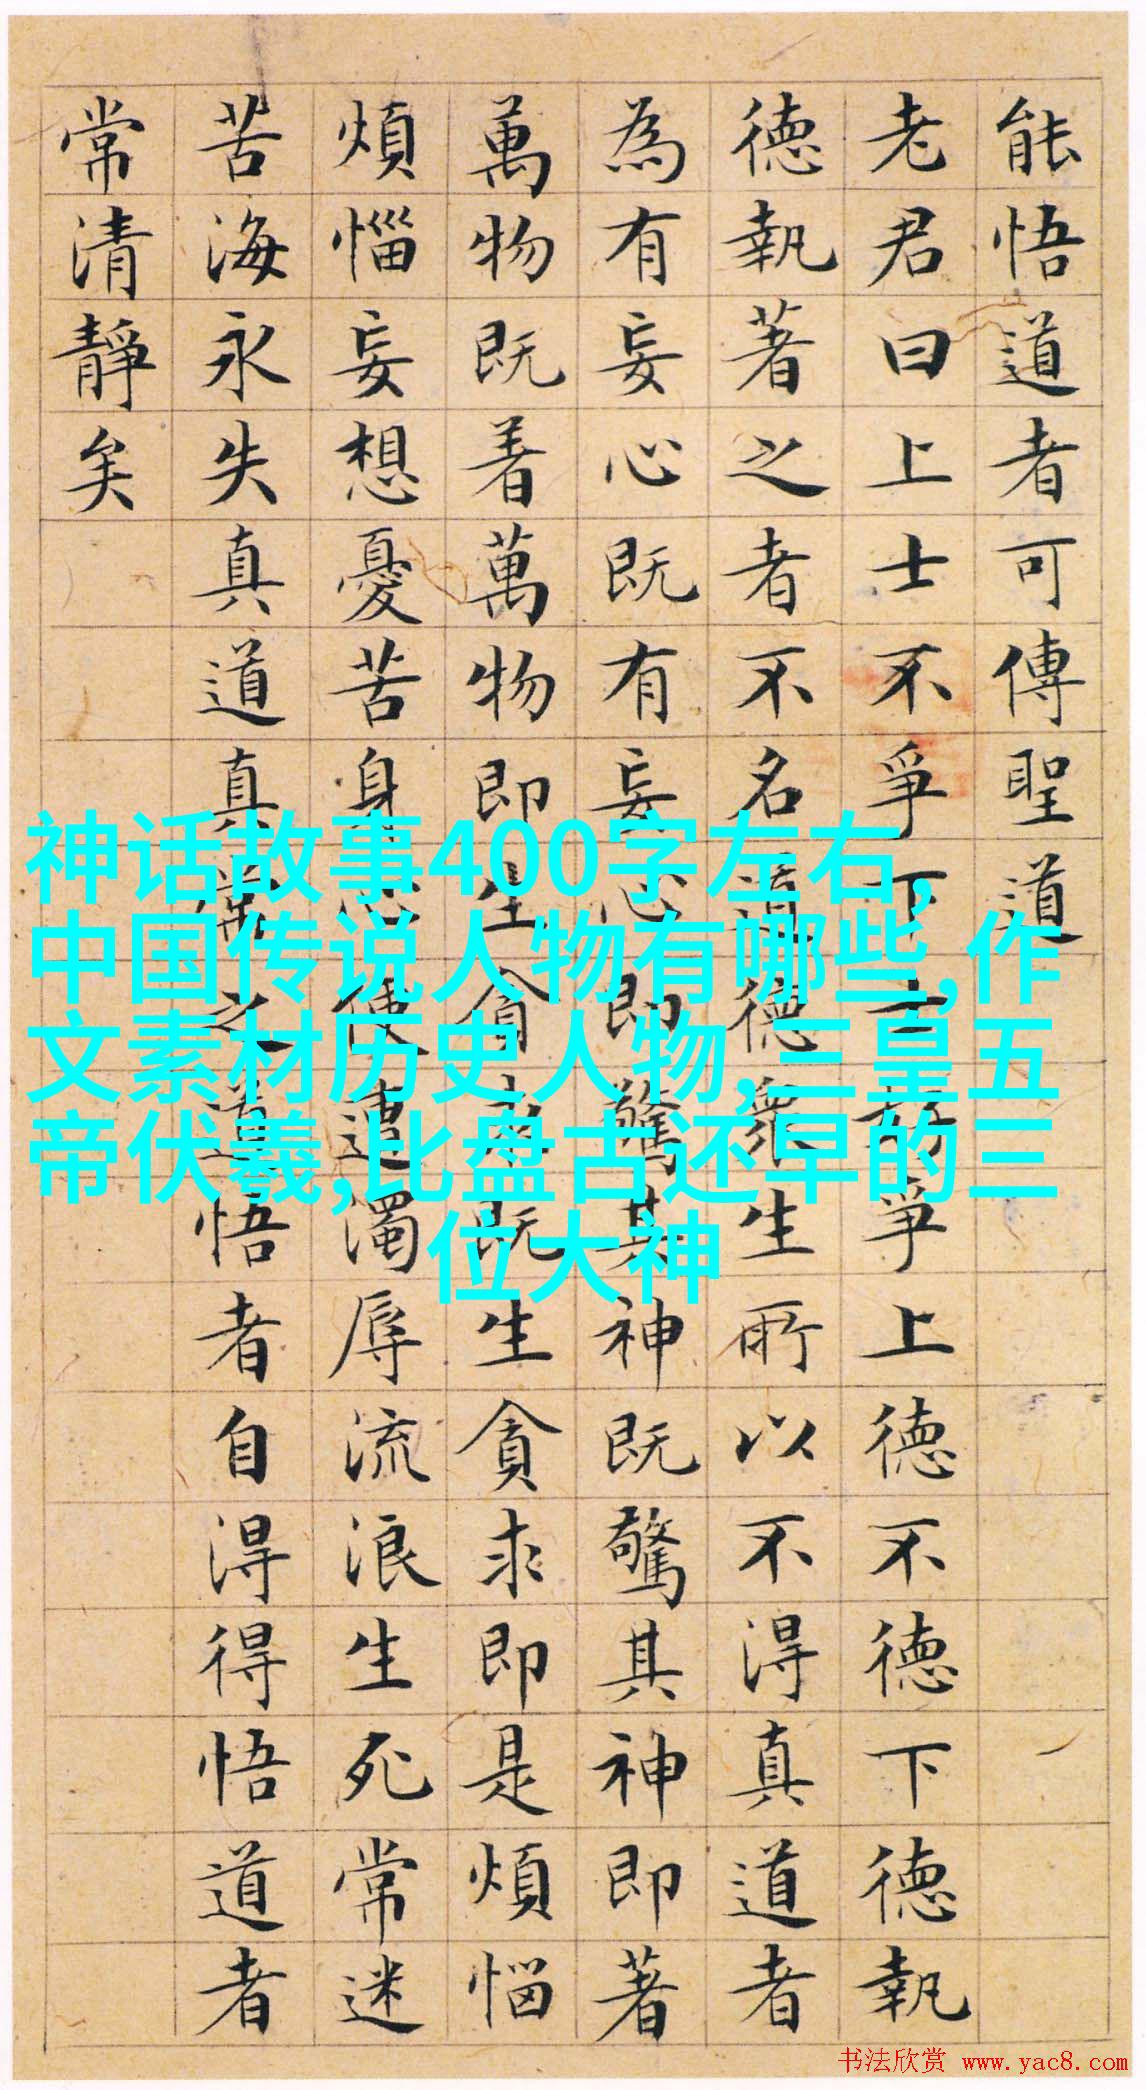 能悟道者可傳聖道
老君曰上士不爭下士好爭上德不德下德執
德執著之者不名道德眾生所以不得真道者
為有妄心既有妄心即驚其神既驚其神即著
萬物既着萬物即生貪求既生貪求即是煩惱
煩惱妄想憂苦身心便遭濁辱流浪生死常迷
苦海永失真道真常之道悟者自得得悟道者
常清靜矣
神话故事400字左右,
中国传说人物有哪些,作
文素材历史人物,三皇五
帝伏羲,比盘古还早的三
位大神
书法欣赏 www.yac8.com